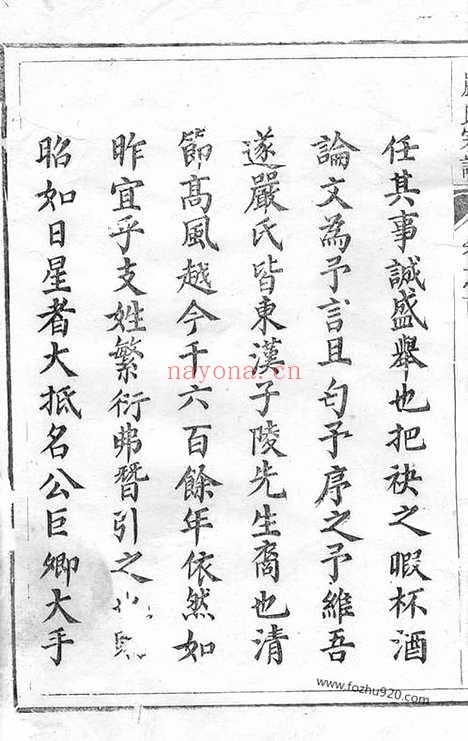 任其事誠盛舉也把袂之暇杯酒
論文為予言且匄予序之予維吾
遂嚴氏皆東漢子陵先生裔也清
節高風越今千六百餘年依然如
昨宜乎支姓繁衍弗替引之
昭如日星者大抵名公巨卿大手
nayona.cn
www.fozhu920.com